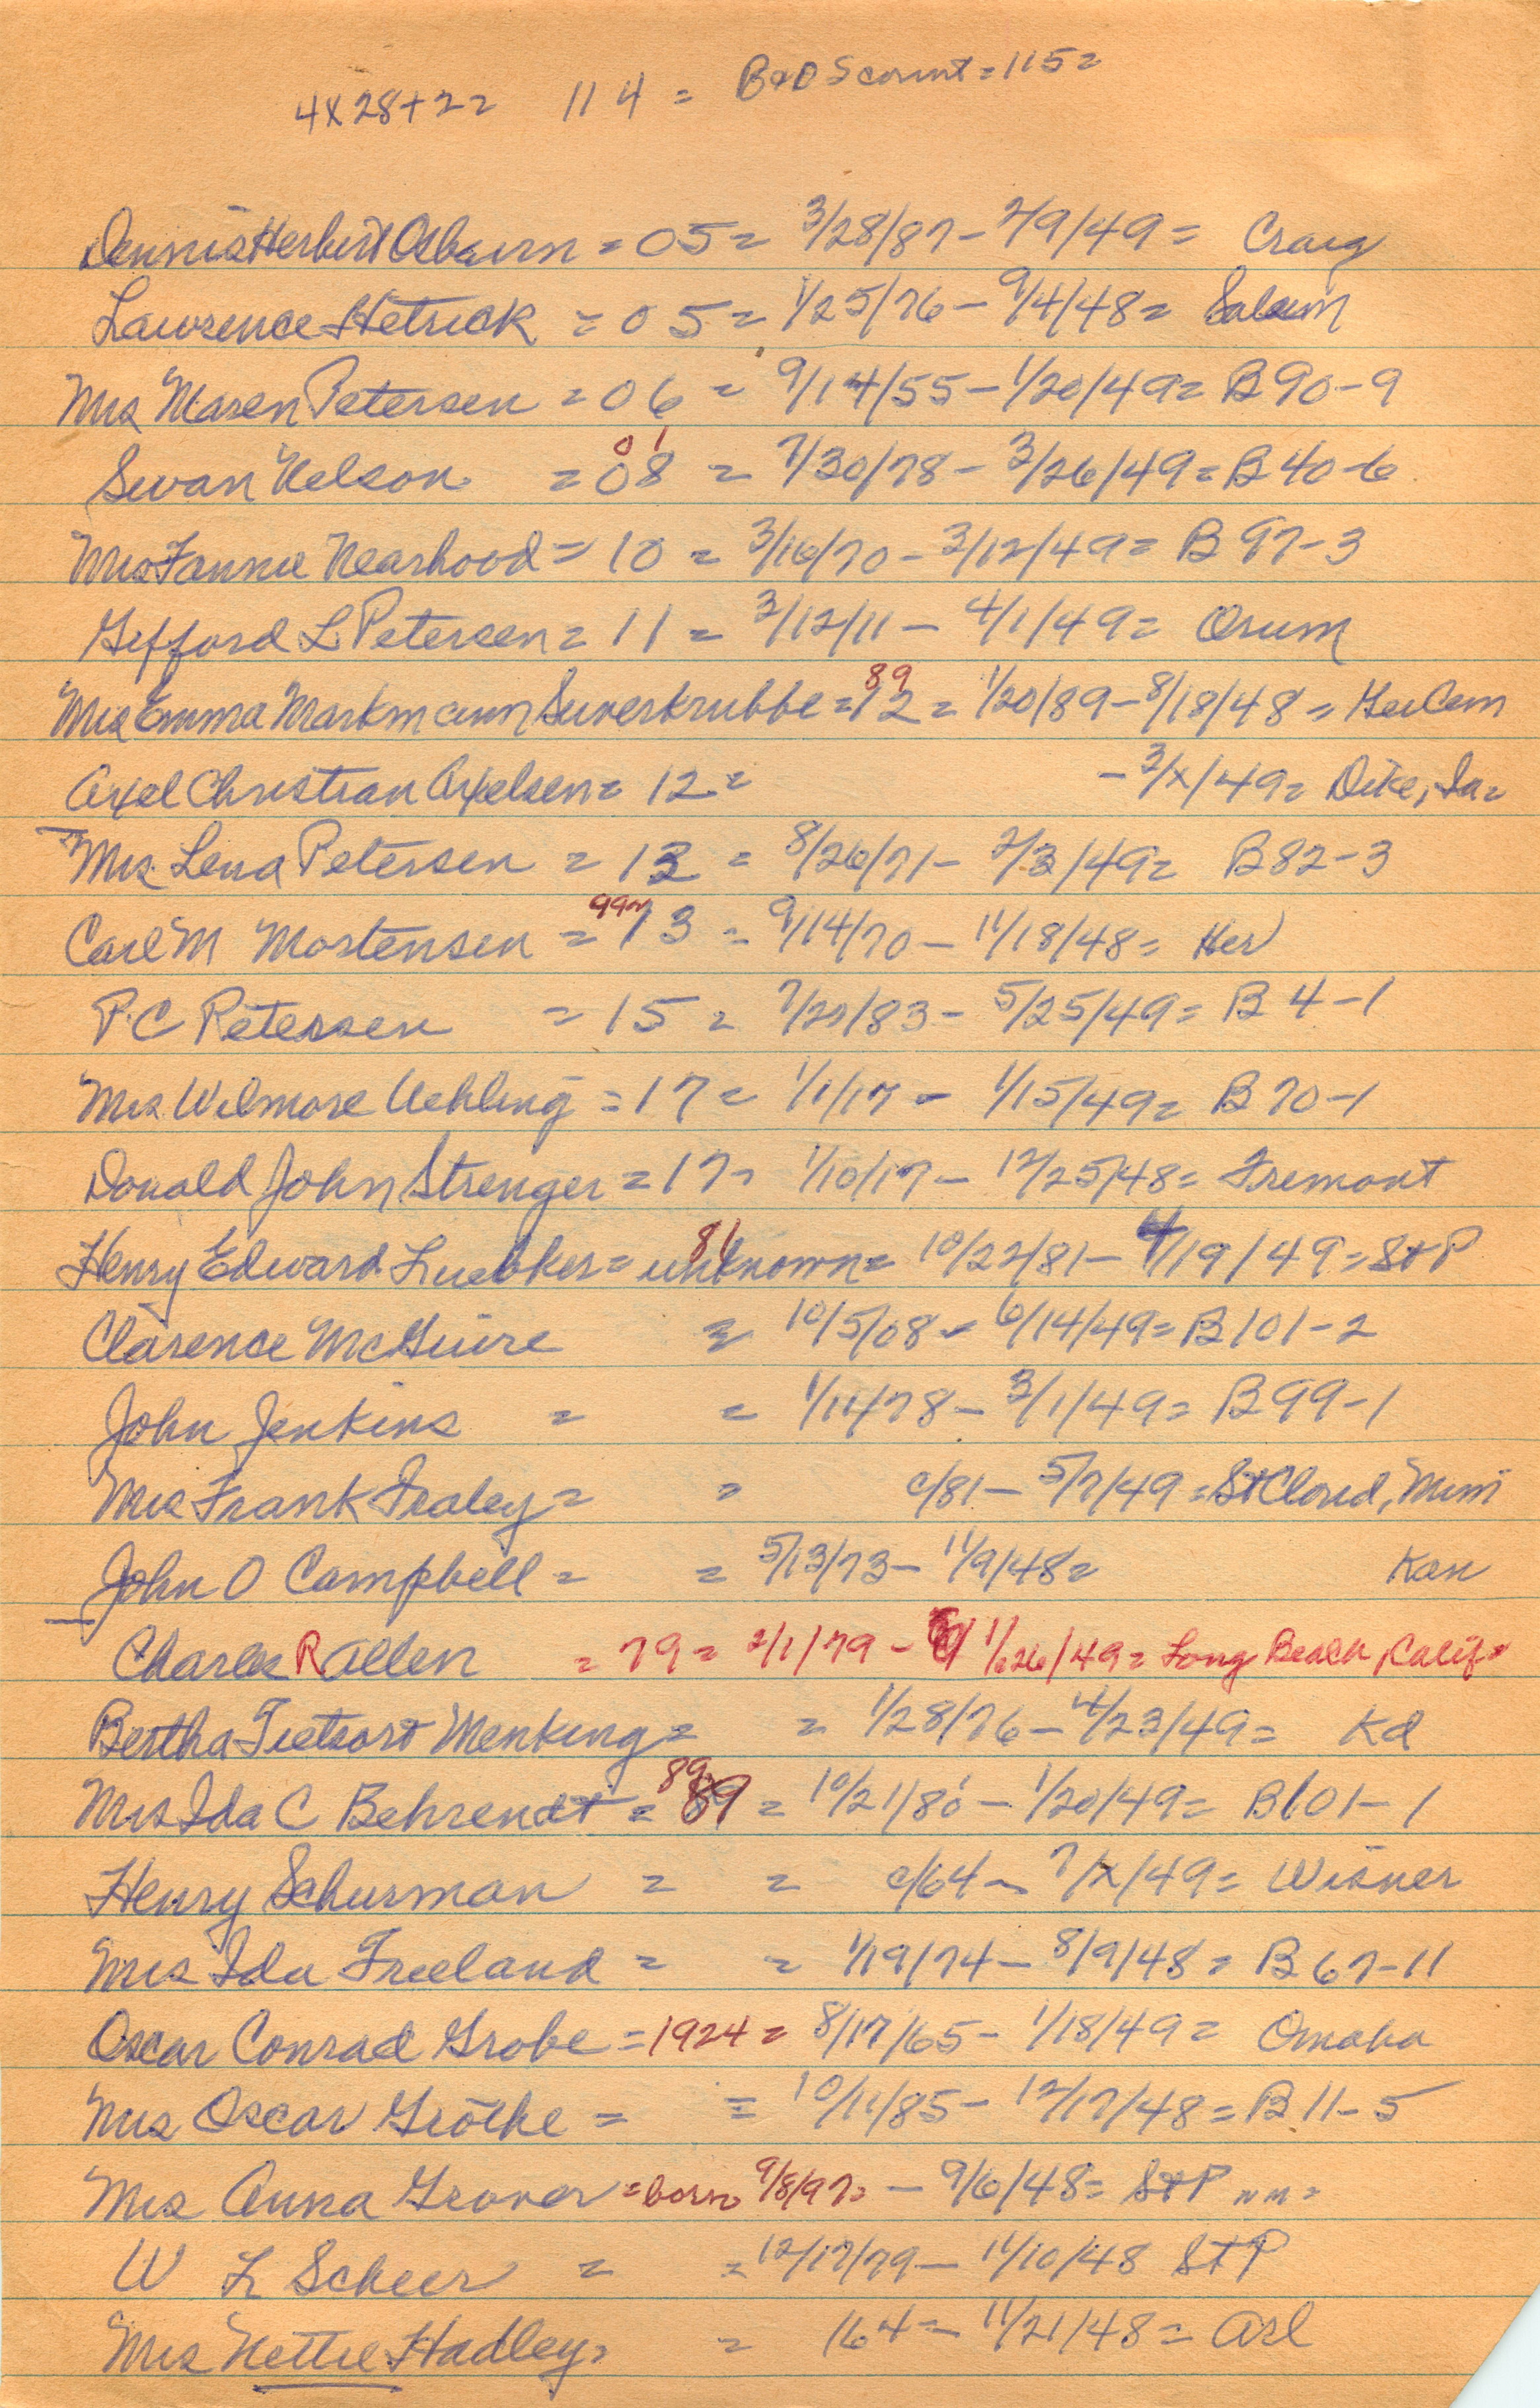 4x28+2= 114 = B&D Scount=115=
Dennis Herbert Osburn = 05 = 3/28/87 - 2/9/49 = Craig
Lawrence Hetrick = 05 = 1/25/76 - 9/4/48 = Salem
Mrs Maren Petersen = 06 = 9/14/55 - 1/20/49 = B 90-9
01
Swan Nelson = 08 = 7/30/78 - 3/26/49 = B 40-6
Mrs Fannie Nearhood = 10 = 3/16/70 - 3/12/49 = B 97-3
Gifford L Petersen = 11 = 3/12/11 - 4/1/49 = Orum
89
Mrs Emma Markmann Suverkrubbe = 12 = 1/20/89 - 8/18/48 = Ger Cem
Axel Christian Axelsen = 12 = - 3/x/49 = Dike, Ia =
Mrs Lena Petersen = 13 = 8/26/71 - 2/3/49 = B 82-3
99
Carl M Mortensen = 13 = 9/14/70 - 11/18/48 = Her
P.C Petersen = 15 = 7/20/83 - 5/25/49 = B 4-1
Mrs Wilmore Uehling = 17 = 1/1/17 - 1/15/49 = B 70-1
Donald John Strenger = 17 = 1/10/17 - 12/25/48 = Fremont
81
Henry Edward Luebker = unknown = 10/22/81 - 4/19/49 = St P
Clarence McGuire = 10/5/08 - 6/14/49 = B 101-2
John Jenkins = = 1/11/78 - 3/1/49 = B 99-1
Mrs Frank Fraley = = c/81 - 5/7/49 = St Cloud, Minn
John O Campbell = = 5/13/73 - 11/9/48 = Kan
Charles R Allen = 79 = 2/1/79 - 1/26/49 = Long Beach, Calif =
Bertha Tietsort Menking = = 1/28/76 - 4/23/49 = Kd
89
Mrs Ida C Behrendt = 89 = 10/21/80 - 1/20/49 = B 101-1
Henry Schurman = = c/64 - 7/x/49 = Wisner
Mrs Ida Freeland = = 1/19/74 - 8/9/48 = B 67-11
Oscar Conrad Grobe = 1924 = 8/17/65 - 1/18/49 = Omaha
Mrs Oscar Grothe = = 10/11/85 - 12/17/48 = B 11-5
Mrs Anna Grover = born 9/8/97 = - 9/6/48 = St P
W L Scheer = = 12/17/79 - 11/10/48 St P
Mrs Nettie Hadley = = 164 - 11/21/48 = Arl